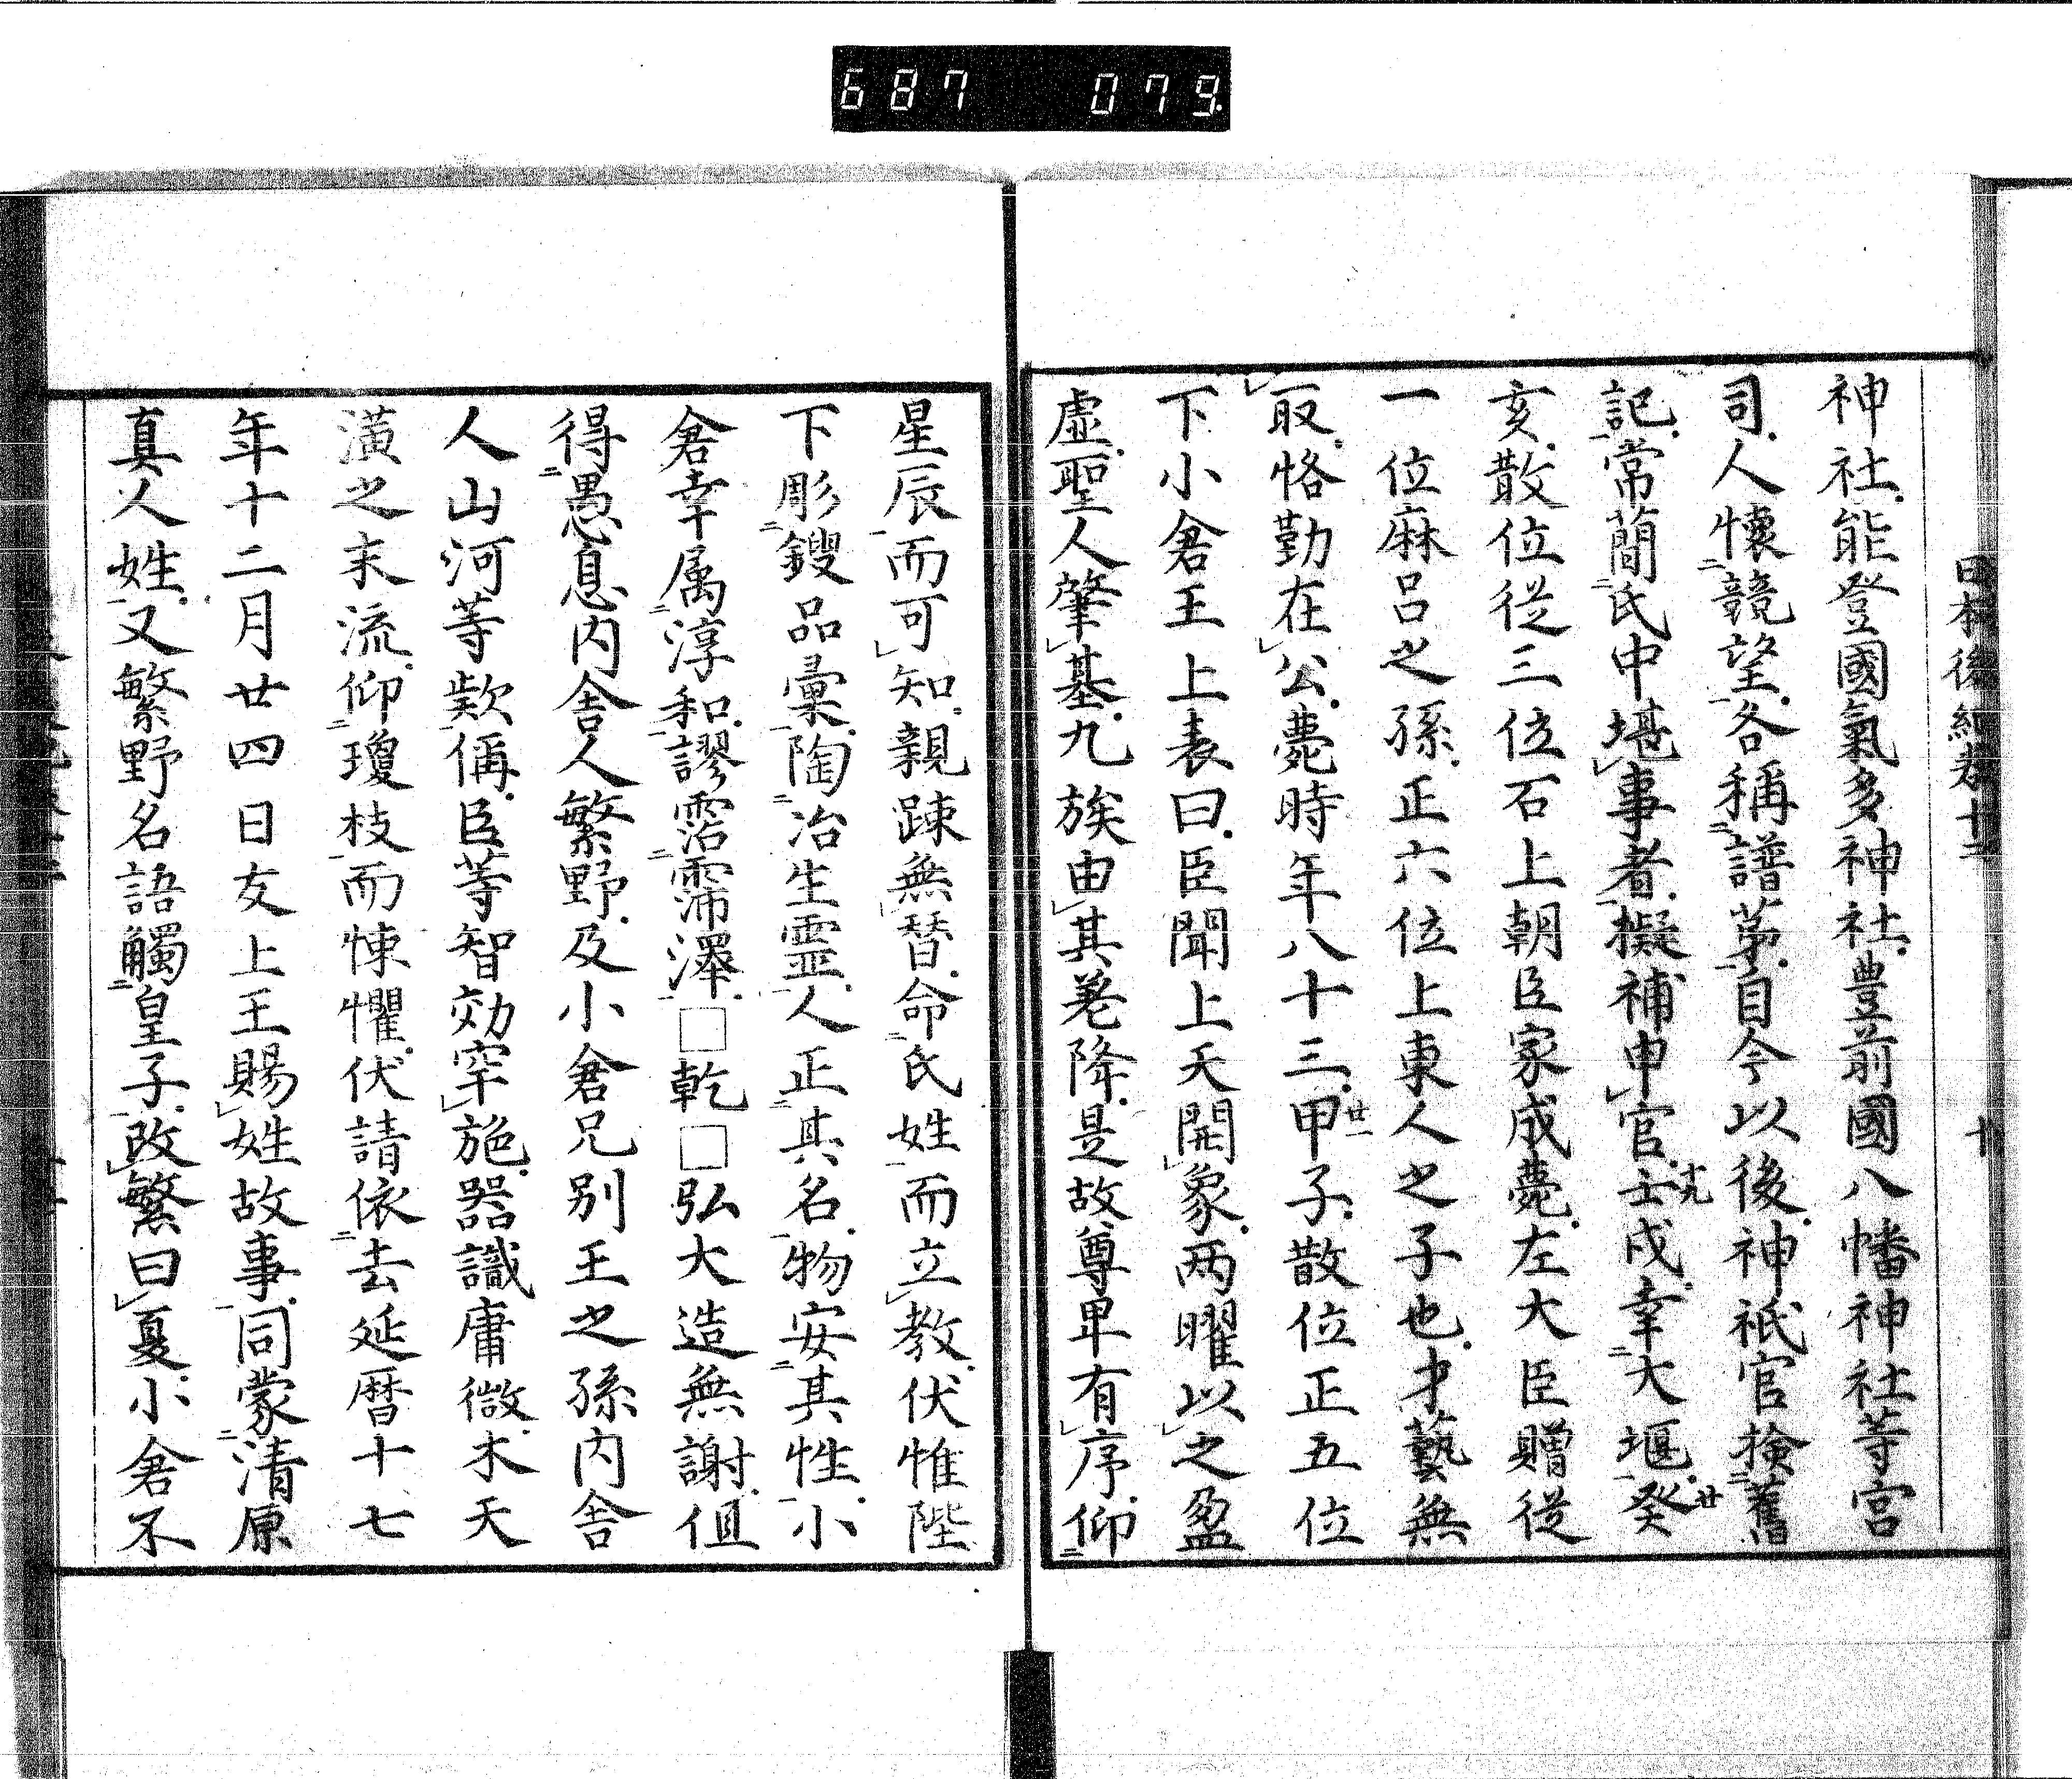 687 079
日本後紀卷十二 十
神社能登國氣多神社豊前國八幡神社等宮
司人懐競望各稱譜第自今以後神祇官撿舊
記常簡氏中堪事者擬補申官壬戌幸大堰癸
亥散位従三位石上朝臣家成薨左大臣贈従
一位麻呂之孫正六位上東人之子也才藝無
取恪勤在公薨時年八十三甲子散位正五位
下小倉王上表曰臣聞上天開象两曜以之盈
虚聖人肇基九族由其差降是故尊卑有序仰
星辰而可知親疎無替命氏姓而立教伏惟陛
下彫鎪品彙陶冶生靈人正其名物安其性小
倉幸属淳和謬霑霈澤□乾□弘大造無謝但
得愚息内舎人繁野及小倉兄別王之孫内舎
人山河等欵偁臣等智効罕施器識庸微木天
潢之末流仰瓊枝而悚懼伏請依去延暦十七
年十二月廿四日友上王賜姓故事同蒙清原
真人姓又繁野名語觸皇子改繁曰夏小倉不